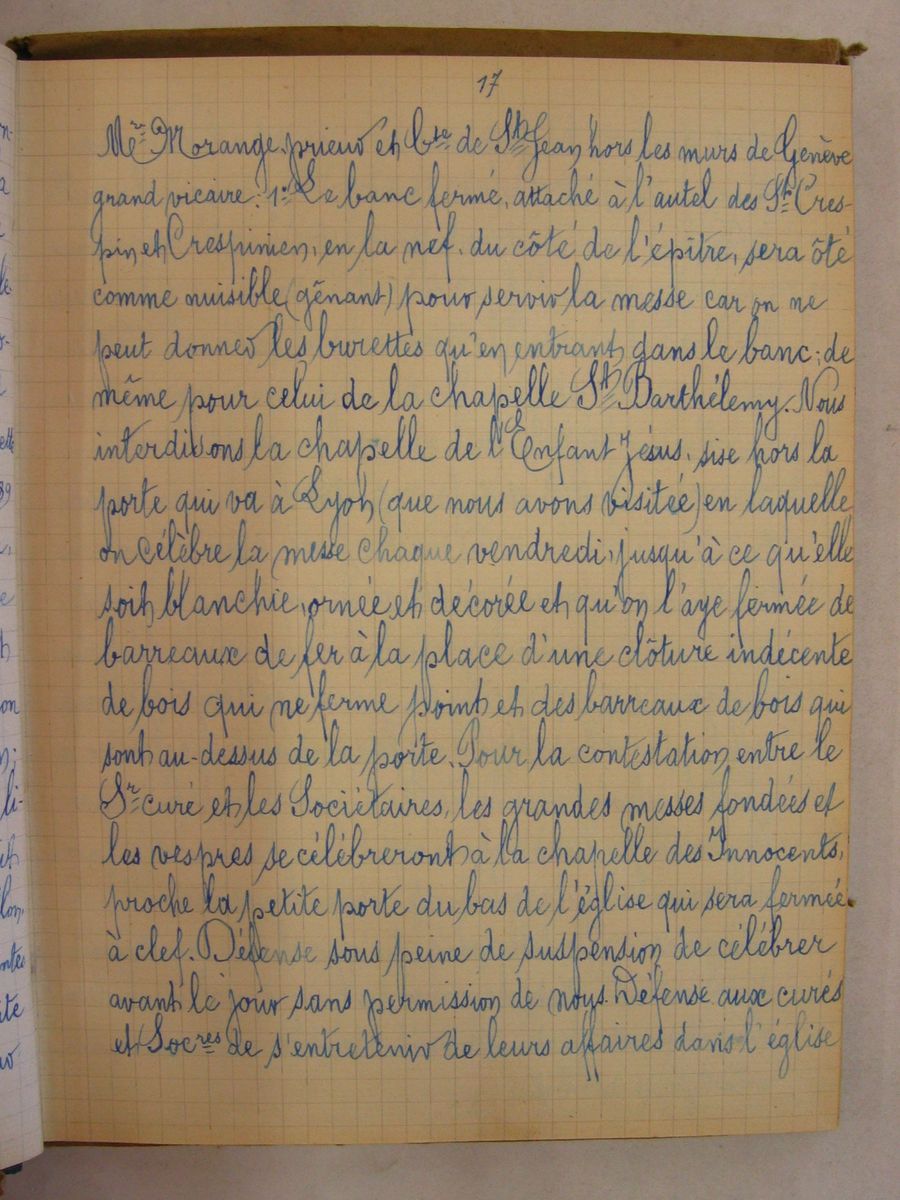 17
Me Morange, prieur et Cte de St Jean hors les murs de Genève
grand vicaire: 1° Le banc fermé, attaché à l'autel des Sts Cres-
pin et Crespinien, en la nef, du côté de l'épître, sera ôté
comme nuisible (gênant) pour servir la messe car on ne
peut donner les burettes qu'en entrant dans le banc; de
même pour celui de la chapelle St Barthélemy. Nous
interdisons la chapelle de l'Enfant Jésus, sise hors la
porte qui va à Lyon (que nous avons visitée) en laquelle
on célèbre la messe chaque vendredi, jusqu'à ce qu'elle
soit blanchie, ornée et décorée et qu'on l'aye fermée de
barreaux de fer à la place d'une clôture indécente
de bois qui ne ferme point et des barreaux de bois qui
sont au-dessus de la porte. Pour la contestation entre le
Sr curé et les Sociétaires, les grandes messes fondées et
les vespres se célébreront à la chapelle des Innocents,
proche la petite porte du bas de l'église qui sera fermée
à clef. Défense sous peine de suspension de célébrer
avant le jour sans permission de nous. Défense aux curés
et Socres de s'entretenir de leurs affaires dans l'église